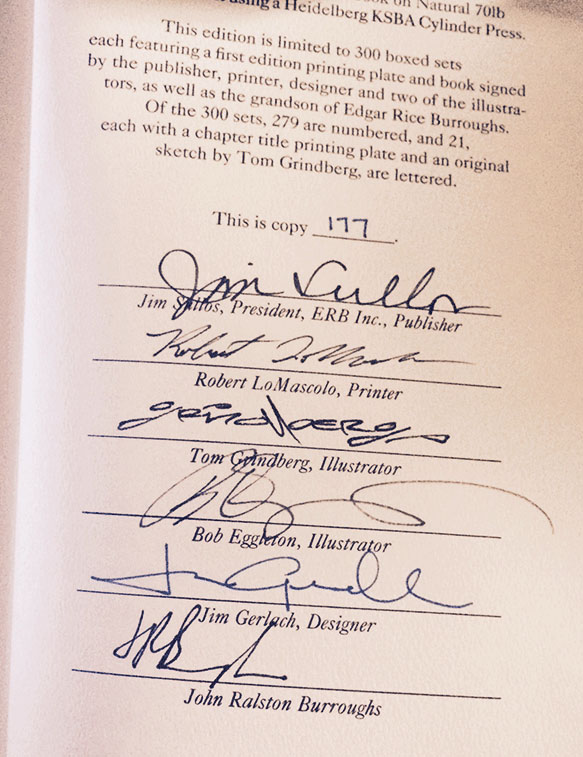 ook on Natural 70lb
using a Heidelberg KSBA Cylinder Press.
This edition is limited to 300 boxed sets
each featuring a first edition printing plate and book signed
by the publisher, printer, designer and two of the illustra-
tors, as well as the grandson of Edgar Rice Burroughs.
Of the 300 sets, 279 are numbered, and 21,
each with a chapter title printing plate and an original
sketch by Tom Grindberg, are lettered.
This is copy 177.
Jim Sullos
Jim Sullos, President, ERB Inc., Publisher
Robert LoMascolo
Robert LoMascolo, Printer
grindberg
Tom Grindberg, Illustrator
Bob Eggleton, Illustrator
Jim Gerlach, Designer
John Ralston Burroughs